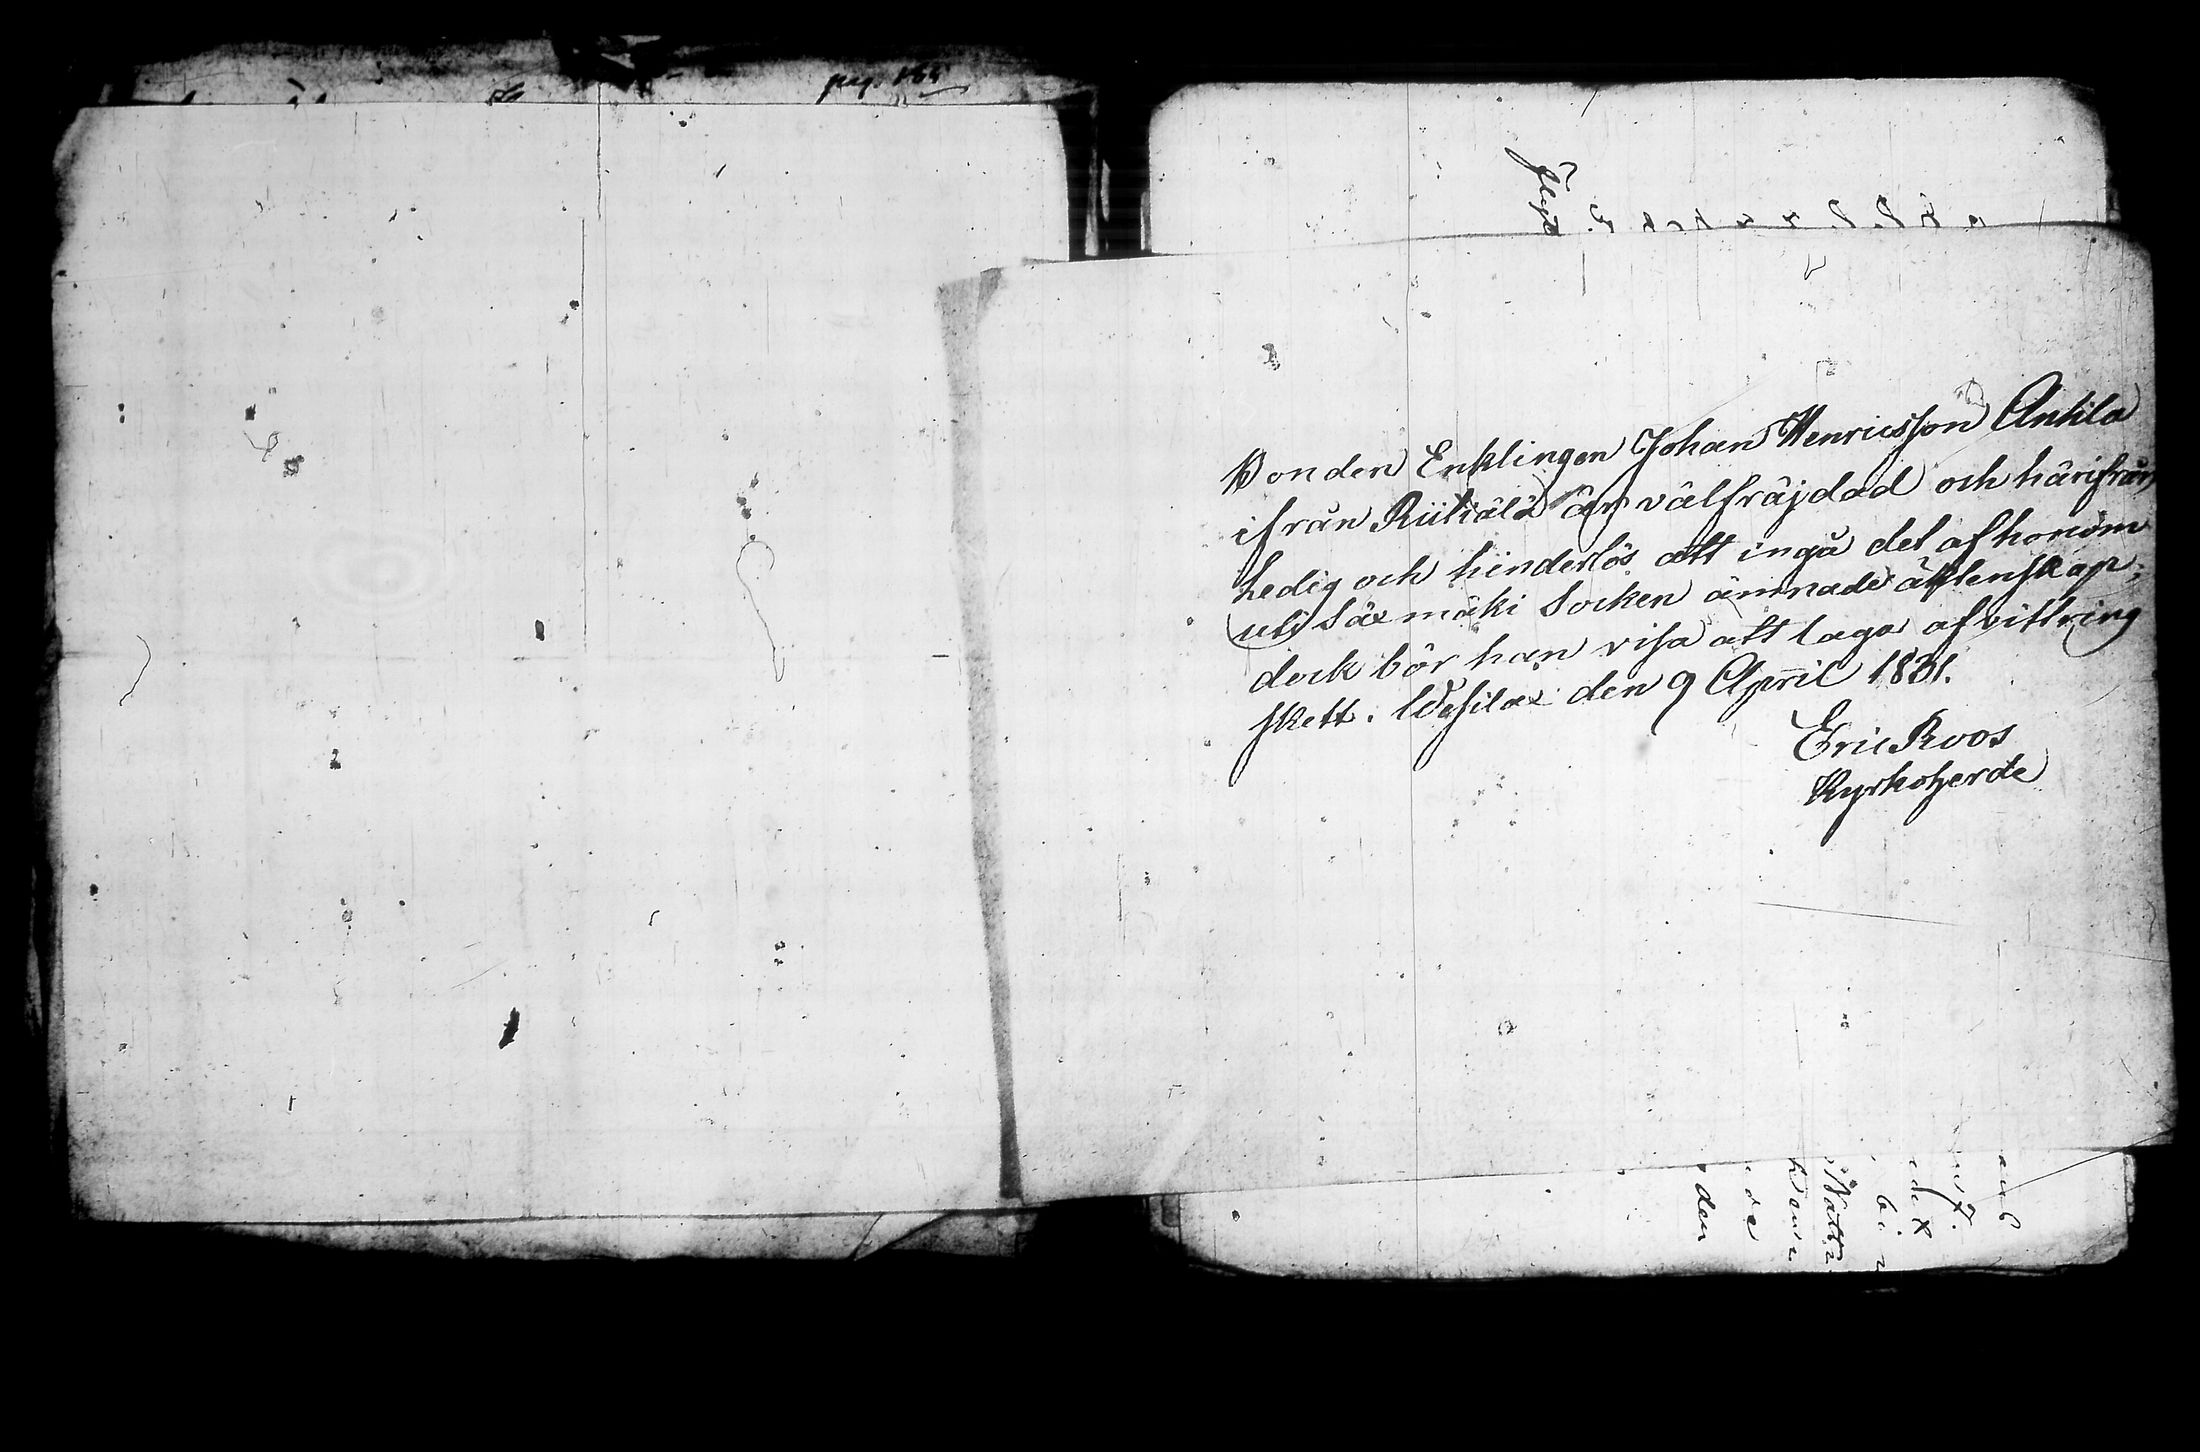 pag. 155
Bonden Enklingen Johan Henricsson Anttila
ifrån Riitiälä är välfräjdad och härifrån
Ledig och hinderlös att ingå det af honom
uti Säxmäki Socken ämnade äktenskap;
dock bör han visa att laga afvittring
skett. Wesilax den 9 April 1831.
Eric Roos
Kyrkoherde
den